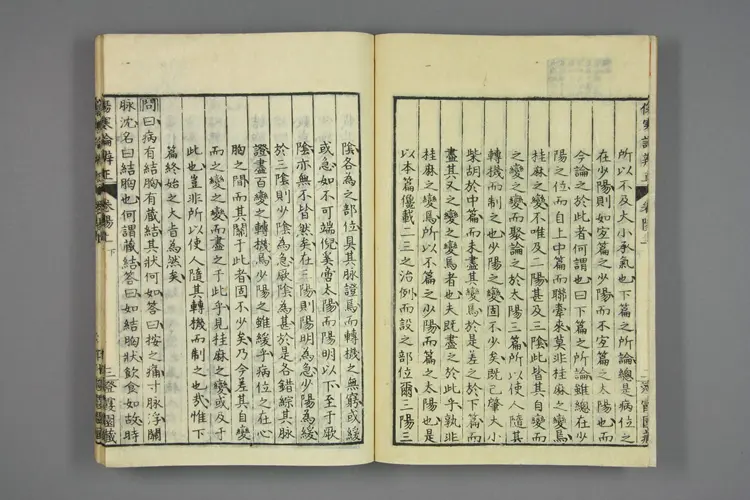 所以不及大小承氣也下篇之所論總是病位之
在少陽則如室篇之少陽而不室篇之太陽也而
今論之於此者何謂也曰下篇之所論雖總在少
陽之位而自上中篇而聯牽來莫非桂麻之變焉
桂麻之變不唯及二陽甚及三陰此皆其自變而
之變之變而聚論之於太陽三篇所以使人隨其
轉機而制之也少陽之變固不少矣既已肇大小
柴胡於中篇而未盡其變焉於是差之於下篇而
盡其又之變之變焉者也夫既盡之於此乎孰非
桂麻之變焉所以不篇之少陽而篇之太陽也是
以本篇僅載二三之治例而設之部位爾三陽三
陰各為之部位具其脉證焉而轉機之無窮或緩
或急如不可端倪矣啻太陽而陽明以下至于厥
陰亦無不皆然矣在三陽則陽明為急少陽為緩
於三陰則少陰為急厥陰為甚於是各錯綜其脉
證盡百變之轉機焉少陽之雖緩乎病位之在心
胸之間而其關于此者固不少矣乃今差其自變
而之變之變而盡之于此乎見桂麻之變或及于
此也豈非所以使人隨其轉機而制之也哉惟下
篇終始之大旨為然矣
問曰病有結胸有藏結其狀何如答曰按之痛寸脉浮關
脉沈名曰結胸也何謂藏結答曰如結胸狀飲食如故時
傷寒論辨正 卷陽 下